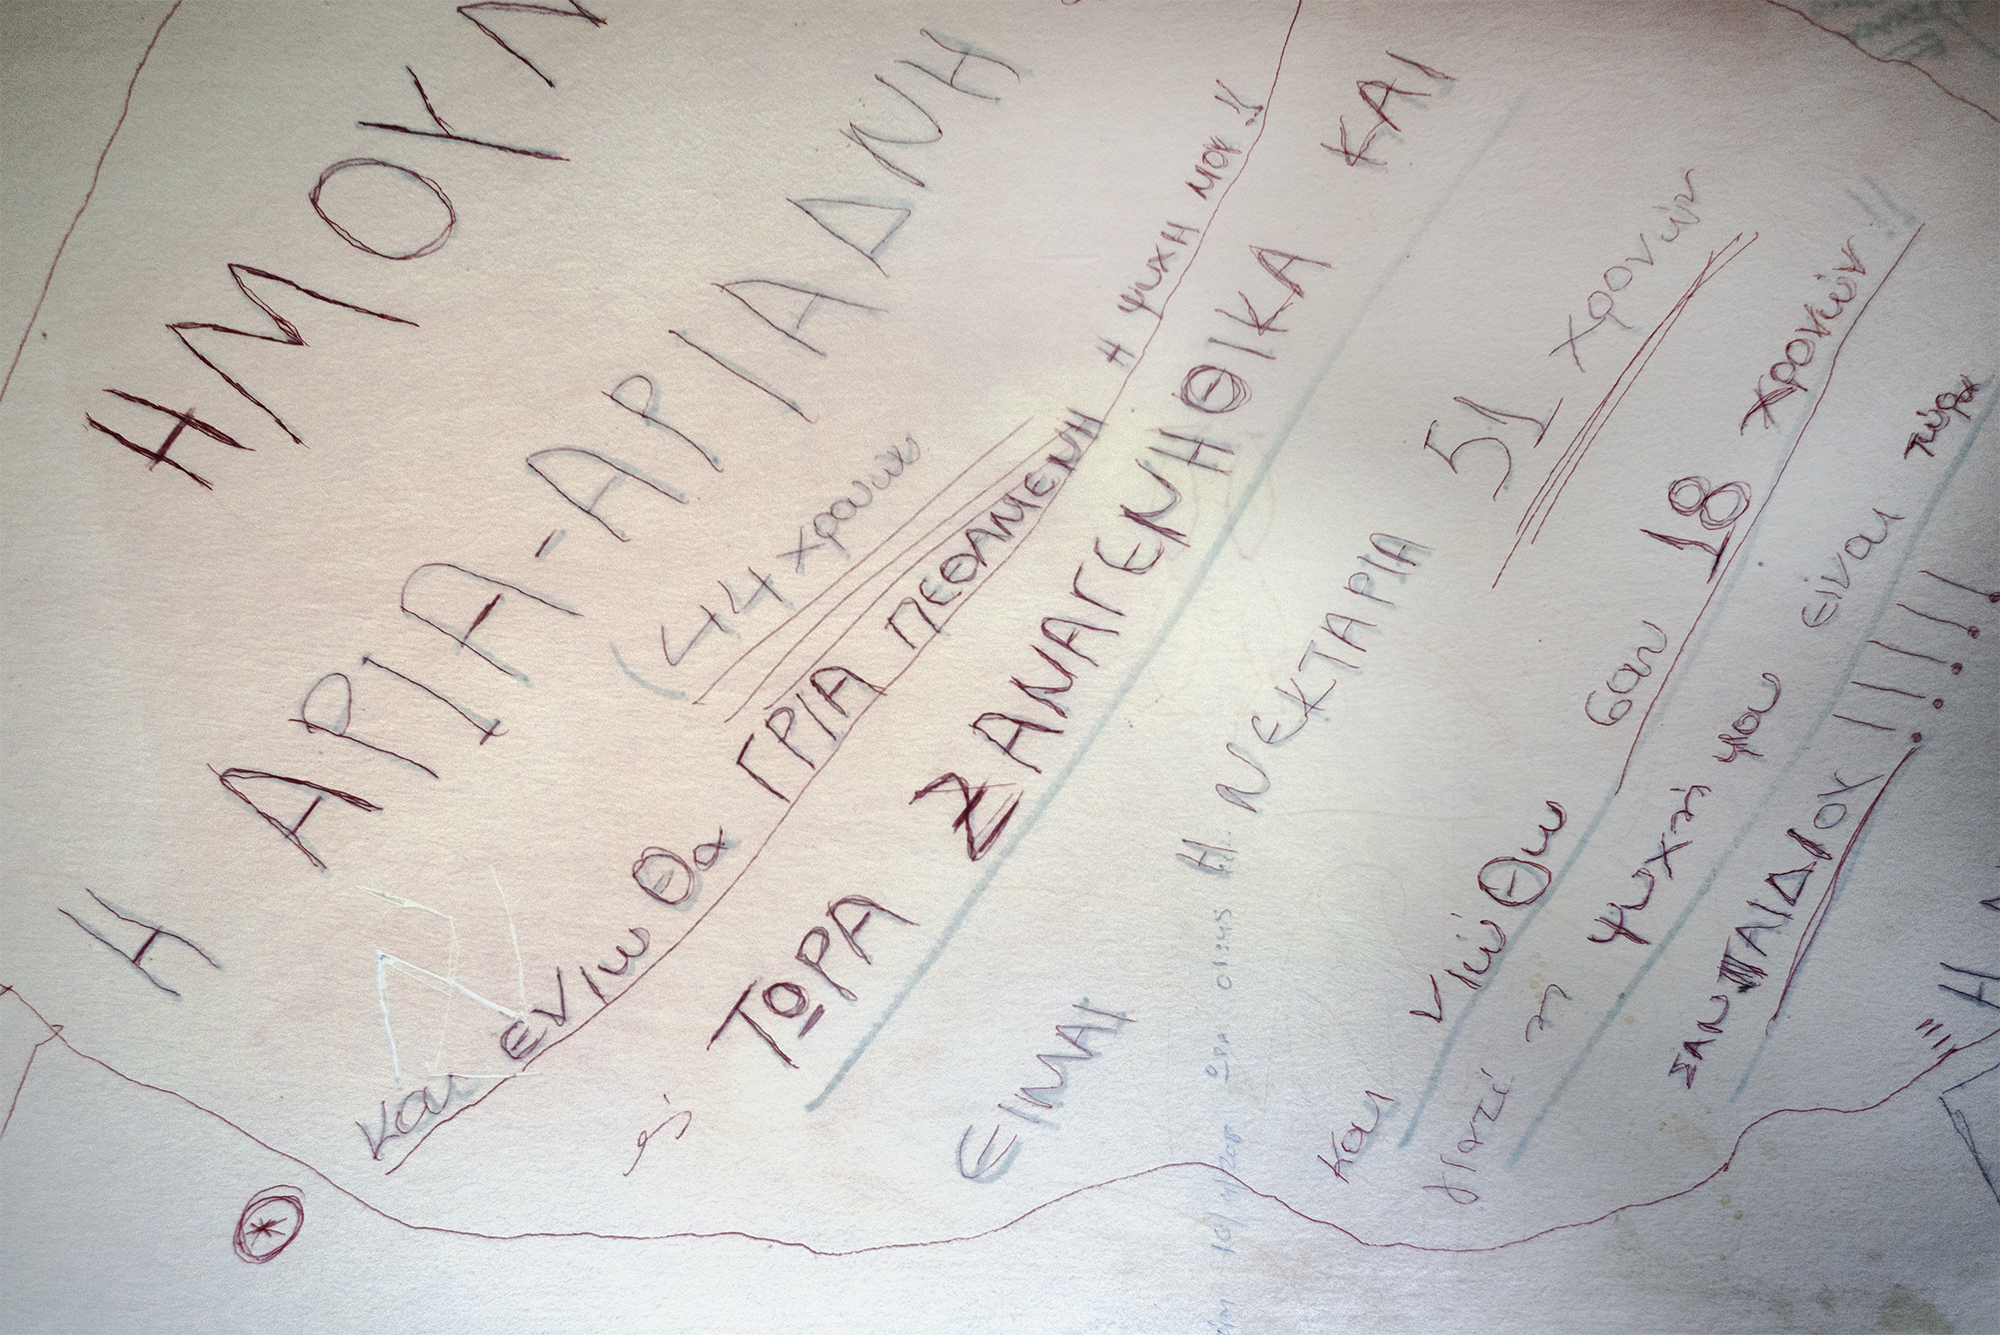 ΗΜΟΥΝ
Η ΑΡΙΑ-ΑΡΙΑΔΝΗ
(44 χρονών
και ένιω Θα ΓΡΙΑ ΠΕΘΑΜΕΝΗ Η ΨΥΧΗ ΜΟΥ!!
ΤΩΡΑ ΞΑΝΑΓΕΝΗΘΙΚΑ ΚΑΙ
ΕΙΜΑΙ Η ΝΕΚΤΑΡΙΑ 51 χρονών
και νιώΘω σαν 18 χρονών!!
γιατί η ψυχή μου είναι τώρα
ΣΑΝ ΠΑΙΔΙΟΥ!!!!!